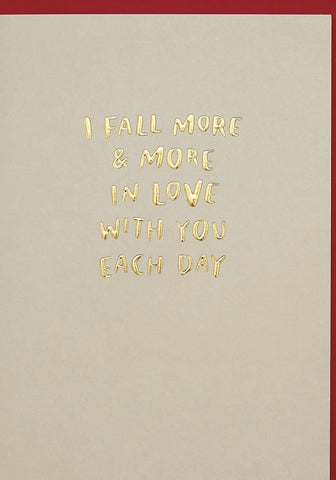 I FALL MORE
& MORE
IN LOVE
WITH YOU
EACH DAY